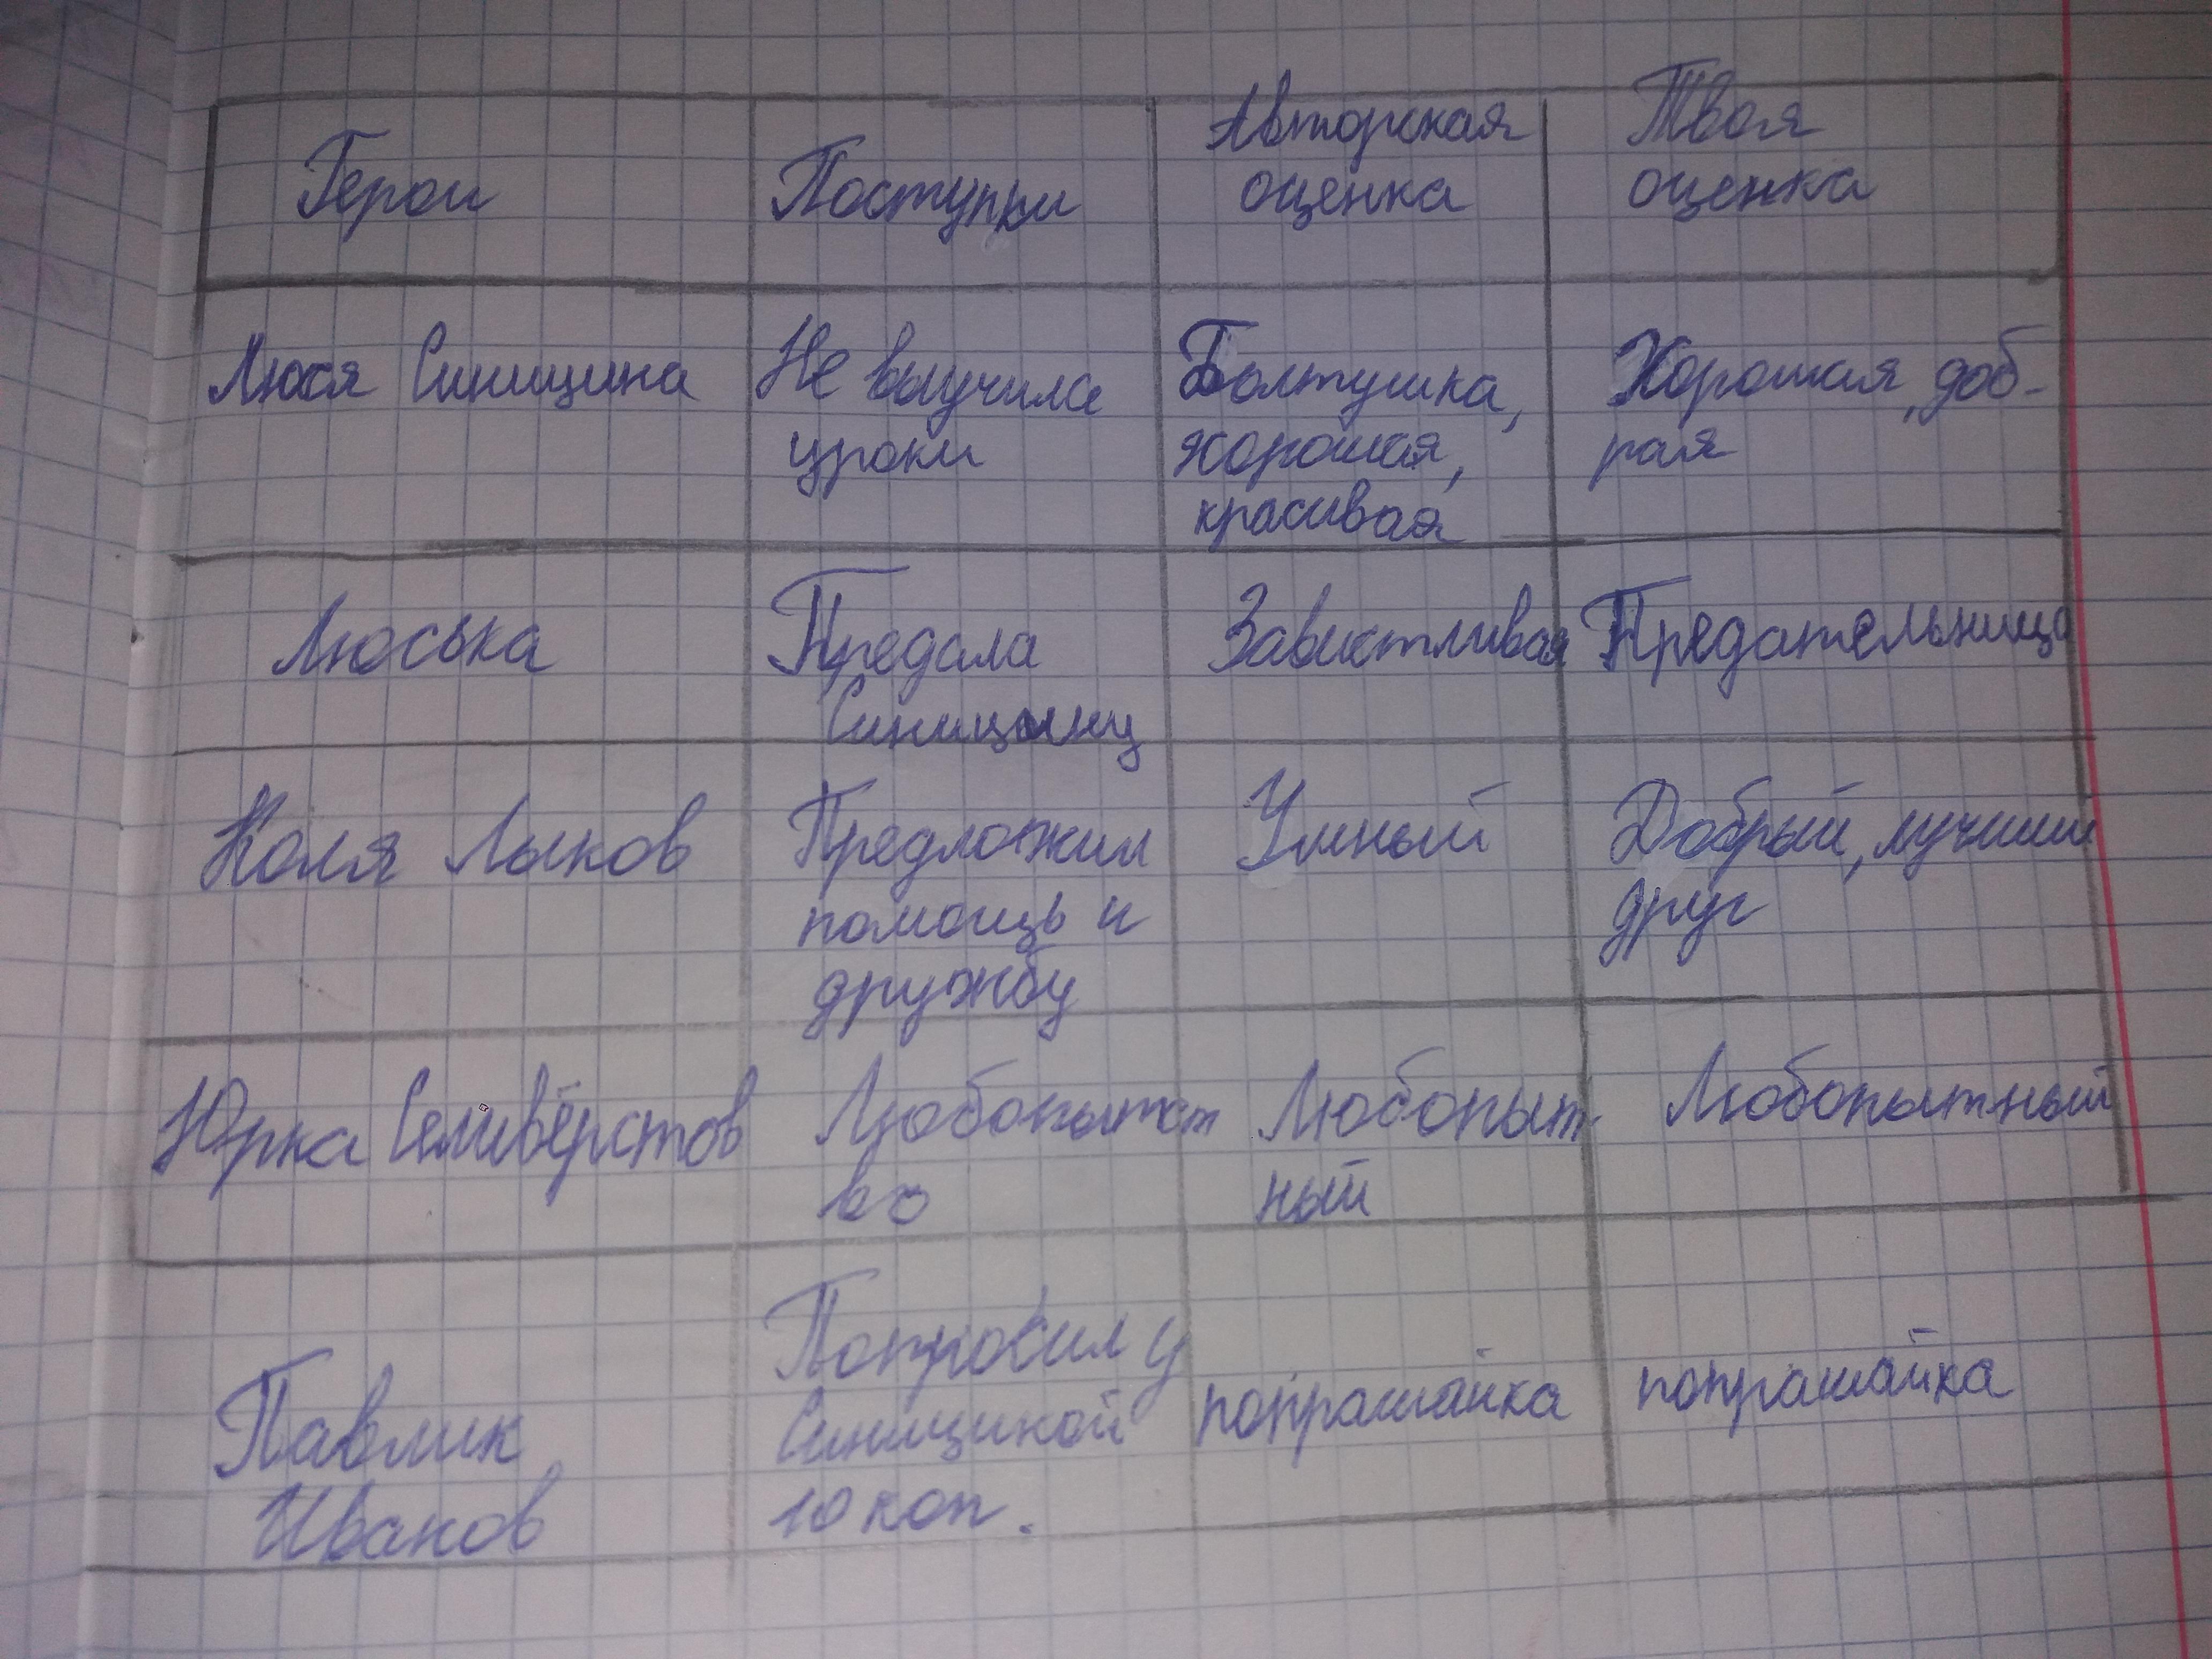 Герои Поступки Авторская оценка Твоя оценка
Люся Синицина Не выучила Болтушка, Хорошая, доб-
уроки хорошая, рая
красивая
Люська Предала Завистливая Предательница
Синицыну
Коля Лыков Предложил Умный Добрый, лучший
помощь и друг
дружбу
Юрка Селивёрстов Любопытст Любопыт- Любопытный
во ный
Павлик Попросил у попрашайка попрашайка
Иванов Синициной
10 коп.